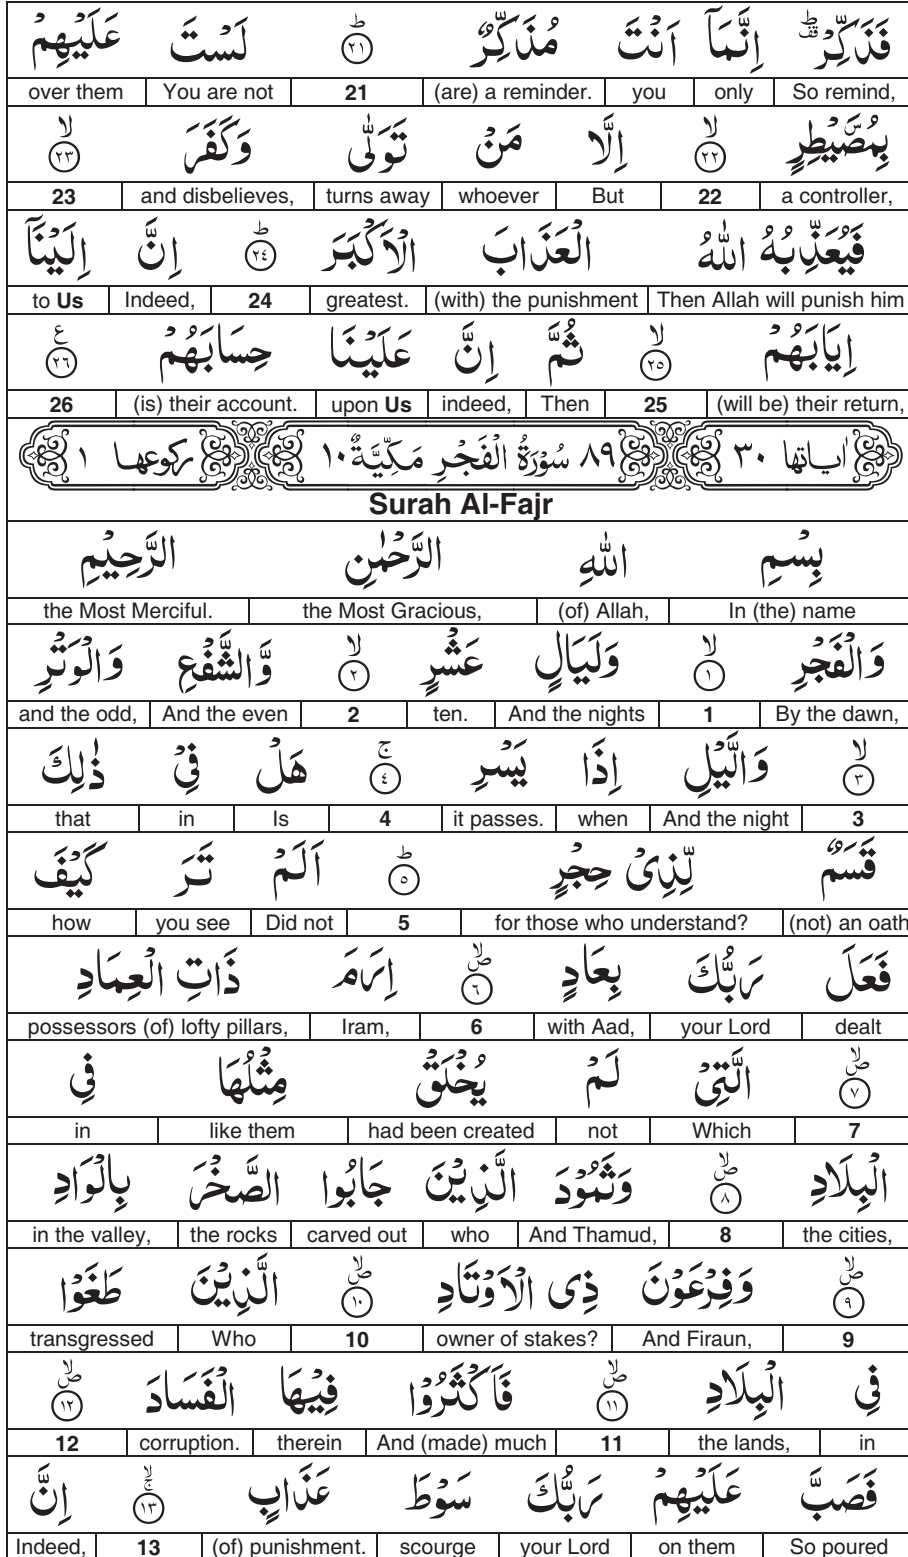 فَذَكِّرْ ۟ؕ اِنَّمَاۤ اَنْتَ مُذَكِّرٌ ؕ﴿۲۱﴾ لَسْتَ عَلَيْهِمْ
So remind, only you (are) a reminder. 21 You are not over them
بِمُصَۜيْطِرٍ ۙ﴿۲۲﴾ اِلَّا مَنْ تَوَلّٰى وَكَفَرَ ۙ﴿۲۳﴾
a controller, 22 But whoever turns away and disbelieves, 23
فَيُعَذِّبُهُ اللّٰهُ الْعَذَابَ الْاَكْبَرَ ؕ﴿۲٤﴾ اِنَّ اِلَيْنَاۤ
Then Allah will punish him (with) the punishment greatest. 24 Indeed, to Us
اِيَابَهُمْ ۙ﴿۲٥﴾ ثُمَّ اِنَّ عَلَيْنَا حِسَابَهُمْ ﴿۲٦﴾ ع
(will be) their return, 25 Then indeed, upon Us (is) their account. 26
اٰياتها ۳۰ ۸۹ سُوْرَةُ الْفَجْرِ مَكِّيَّةٌ ۱۰ ركوعها ۱
Surah Al-Fajr
بِسْمِ اللّٰهِ الرَّحْمٰنِ الرَّحِيْمِ
In (the) name (of) Allah, the Most Gracious, the Most Merciful.
وَالْفَجْرِ ۙ﴿۱﴾ وَلَيَالٍ عَشْرٍ ۙ﴿۲﴾ وَّالشَّفْعِ وَالْوَتْرِ
By the dawn, 1 And the nights ten. 2 And the even and the odd,
ۙ﴿۳﴾ وَالَّيْلِ اِذَا يَسْرِ ۚ﴿٤﴾ هَلْ فِيْ ذٰلِكَ
3 And the night when it passes. 4 Is in that
قَسَمٌ لِّذِيْ حِجْرٍ ؕ﴿٥﴾ اَلَمْ تَرَ كَيْفَ
(not) an oath for those who understand? 5 Did not you see how
فَعَلَ رَبُّكَ بِعَادٍ ۪ۙ﴿٦﴾ اِرَمَ ذَاتِ الْعِمَادِ
dealt your Lord with Aad, 6 Iram, possessors (of) lofty pillars,
۪ۙ﴿۷﴾ الَّتِيْ لَمْ يُخْلَقْ مِثْلُهَا فِي
7 Which not had been created like them in
الْبِلَادِ ۪ۙ﴿۸﴾ وَثَمُوْدَ الَّذِيْنَ جَابُوا الصَّخْرَ بِالْوَادِ
the cities, 8 And Thamud, who carved out the rocks in the valley,
۪ۙ﴿۹﴾ وَفِرْعَوْنَ ذِى الْاَوْتَادِ ۪ۙ﴿۱۰﴾ الَّذِيْنَ طَغَوْا
9 And Firaun, owner of stakes? 10 Who transgressed
فِي الْبِلَادِ ۪ۙ﴿۱۱﴾ فَاَكْثَرُوْا فِيْهَا الْفَسَادَ ۪ۙ﴿۱۲﴾
in the lands, 11 And (made) much therein corruption. 12
فَصَبَّ عَلَيْهِمْ رَبُّكَ سَوْطَ عَذَابٍ ۚۙ﴿۱۳﴾ اِنَّ
So poured on them your Lord scourge (of) punishment. 13 Indeed,